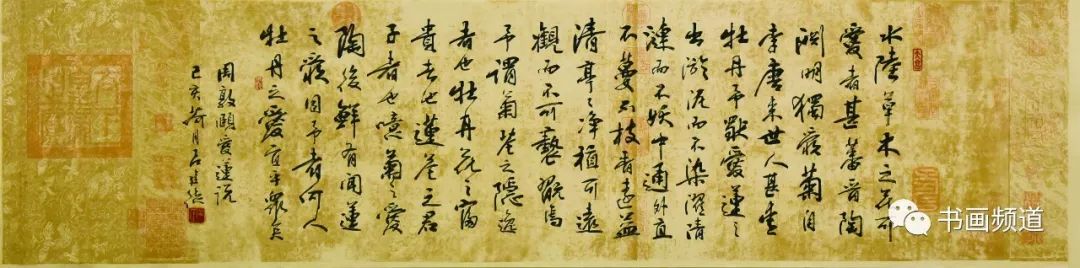 水陸草木之花可
愛者甚蕃晋陶
渊明獨爱菊自
李唐来世人甚爱
牡丹予獨愛蓮之
出淤泥而不染濯清
漣而不妖中通外直
不蔓不枝香遠益
清亭々净植可遠
觀而不可褻翫焉
予謂菊花之隱逸
者也牡丹花之富
貴者也蓮花之君
子者也噫菊之愛
陶後鮮有聞蓮
之爱同予者何人
牡丹之愛宜乎眾矣
周敦頤爱蓮説
己亥荷月
书画频道